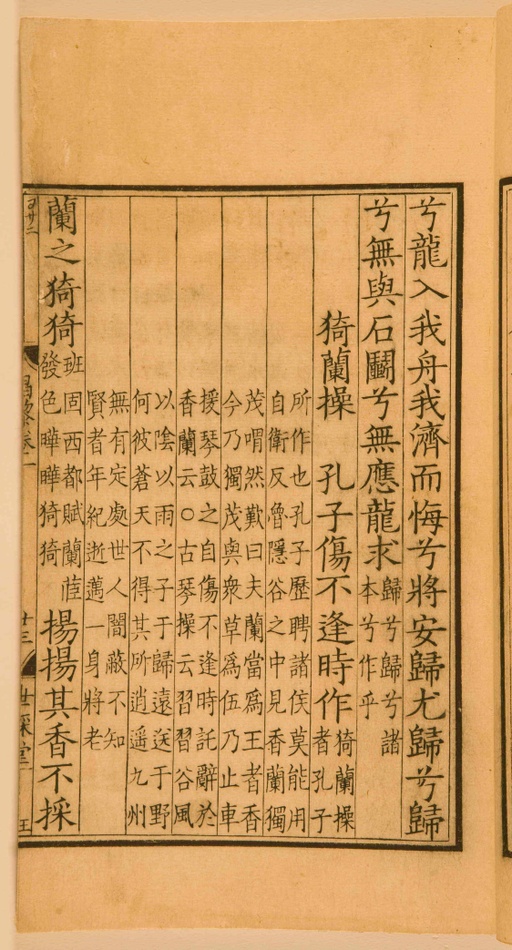 兮龍入我舟我濟而悔兮將安歸尤歸兮歸
兮無與石鬭兮無應龍求
歸兮歸兮諸
本兮作乎
猗蘭操　孔子傷不逢時作
猗蘭操
者孔子
所作也孔子歷聘諸侯莫能用
自衛反魯隱谷之中見香蘭獨
茂喟然歎曰夫蘭當爲王者香
今乃獨茂與衆草爲伍乃止車
援琴鼓之自傷不逢時託辭於
香蘭云○古琴操云習習谷風
以陰以雨之子于歸遠送于野
何彼蒼天不得其所逍遥九州
無有定處世人闇蔽不知
賢者年紀逝邁一身將老
蘭之猗猗
班固西都賦蘭茝
發色曄曄猗猗
揚揚其香不採